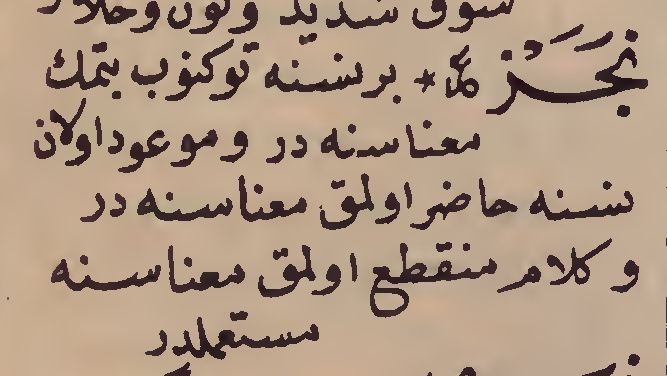 سوق شديد و نون و حلاوت
نَجَزَ ٤ * بر نسنه توكنوب بتمك
معناسنه در و موعود اولان
نسنه حاضر اولمق معناسنه در
و كلام منقطع اولمق معناسنه
مستعملدر